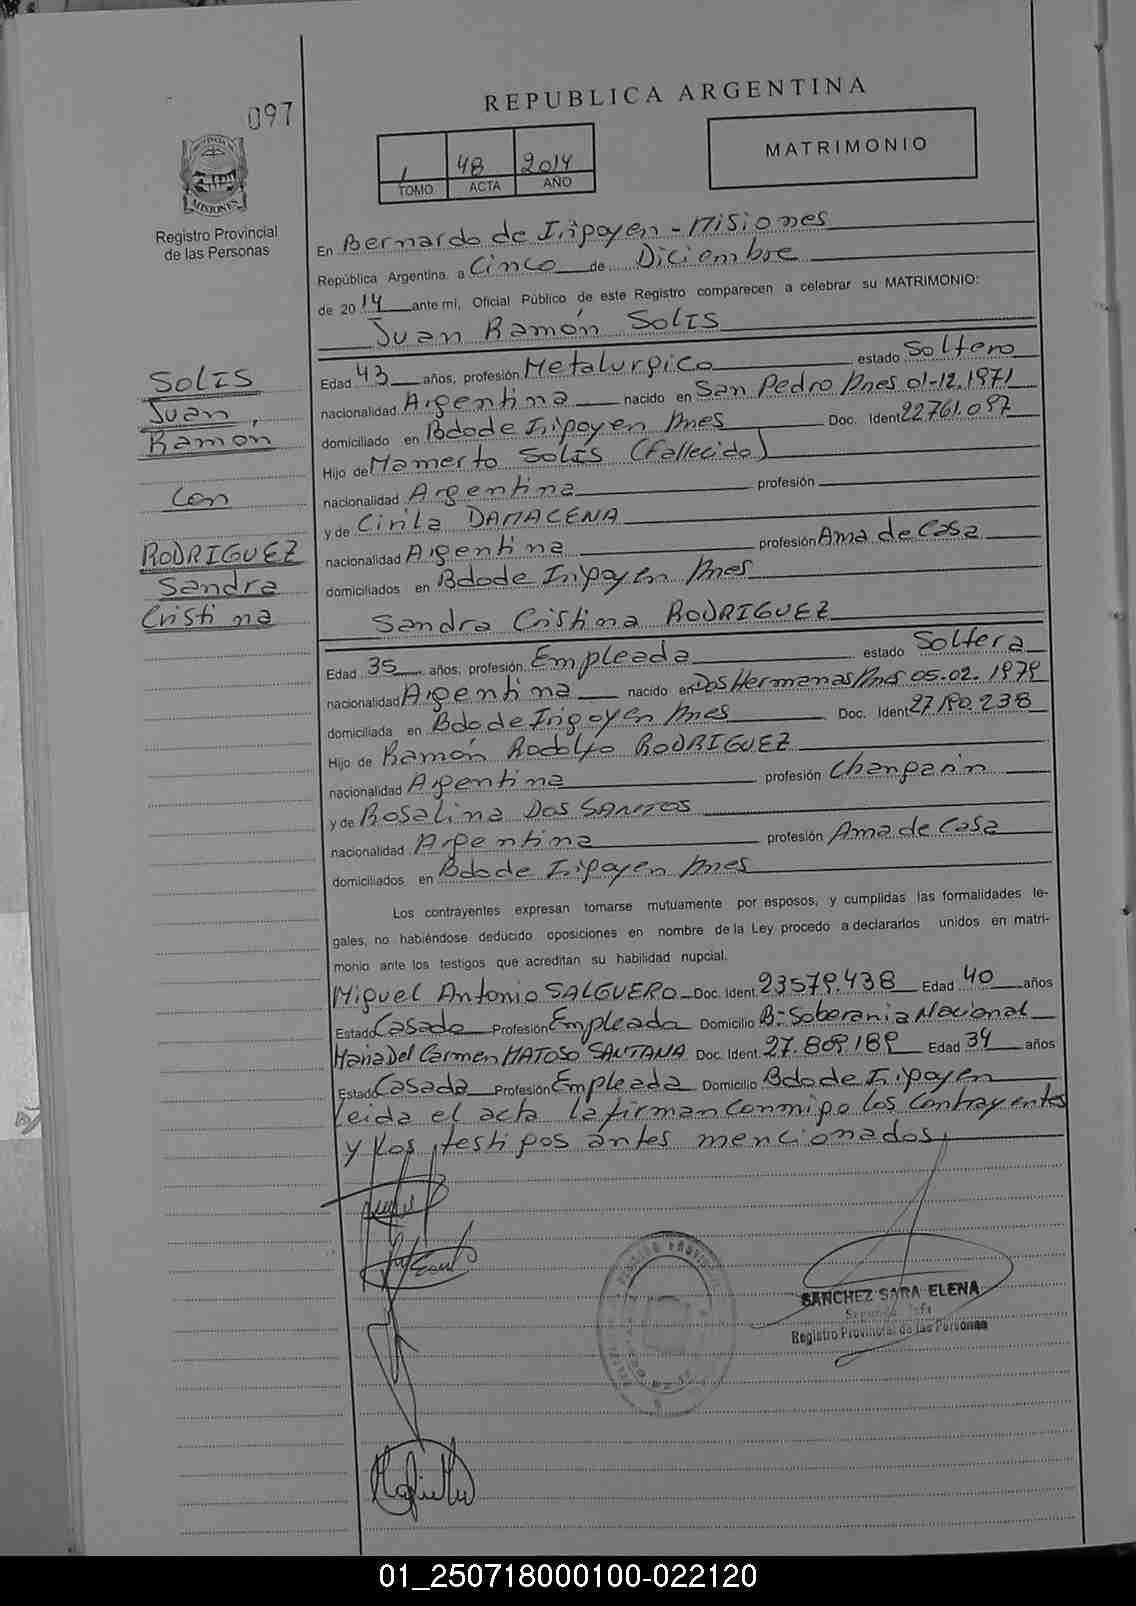 097
REPUBLICA ARGENTINA
1 48 2014
TOMO ACTA AÑO
MATRIMONIO
MISIONES
Registro Provincial
de las Personas
En Bernardo de Irigoyen - Misiones
República Argentina, a Cinco de Diciembre
de 2014 ante mi, Oficial Público de este Registro comparecen a celebrar su MATRIMONIO:
Juan Ramón SOLIS
SOLIS
Juan
Ramón
Con
RODRIGUEZ
Sandra
Cristina
Edad 43 años, profesión Metalurgico estado Soltero
nacionalidad Argentina nacido en San Pedro Mnes 01-12.1971
domiciliado en Bdo de Irigoyen Mnes Doc. Ident 22761.097
Hijo de Mamerto SOLIS (fallecido)
nacionalidad Argentina profesión
y de Cirila DAMACENA
nacionalidad Argentina profesión Ama de Casa
domiciliados en Bdo de Irigoyen Mnes
Sandra Cristina RODRIGUEZ
Edad 35 años, profesión Empleada estado Soltera
nacionalidad Argentina nacido en Dos Hermanas Mnes 05.02.1979
domiciliada en Bdo de Irigoyen Mnes Doc. Ident 27.190.238
Hijo de Ramón Rodolfo RODRIGUEZ
nacionalidad Argentina profesión
y de Rosalina DOS SANTOS
nacionalidad Argentina profesión Ama de Casa
domiciliados en Bdo de Irigoyen Mnes
Los contrayentes expresan tomarse mutuamente por esposos, y cumplidas las formalidades le-
gales, no habiéndose deducido oposiciones en nombre de la Ley procedo a declararlos unidos en matri-
monio ante los testigos que acreditan su habilidad nupcial.
Miguel Antonio SALGUERO Doc. Ident. 23579.438 Edad 40 años
Estado Casado Profesión Empleada Domicilio B: Soberania Nacional
Maria Del Carmen MATOSO SANTANA Doc. Ident. 27.809.189 Edad 34 años
Estado Casada Profesión Empleada Domicilio Bdo de Irigoyen
leida el acta la firman conmigo los contrayentes
y los testigos antes mencionados
SANCHEZ SARA ELENA
Registro Provincial de las Personas
01_250718000100-022120